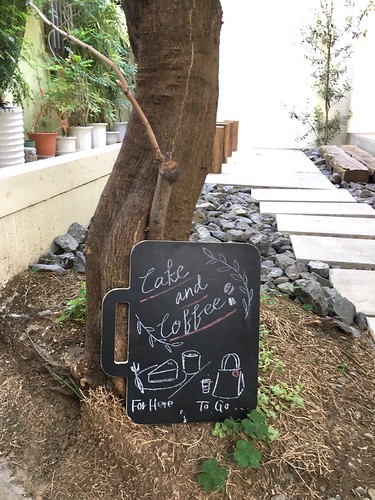 Cake
and
Coffee
For Here
To Go